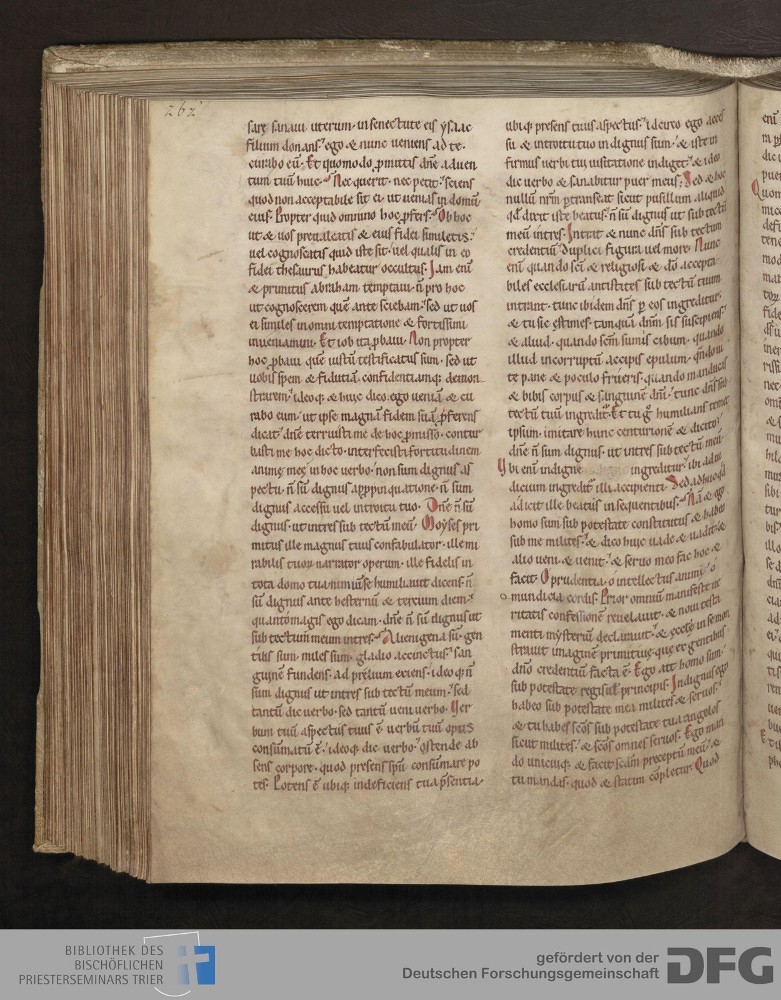 262
sarę sanaui uterum· in senectute eis ysaac
filium donans· ego & nunc ueniens ad te·
curabo eū· Et quomodo ꝓmittis dn̄e aduen
tum tuū huic· Nec querit· nec petit· sciens
quod non acceptabile sit ei· ut uenias in domū
eius· Propter quid omnino hoc ꝓfers· Ob hoc
ut & uos preualeatis & eius fidei similetis·
uel cognoscatis quid iste sit· uel qualis in eo
fidei thesaurus habeatur occultus· Iam eni
& primitus abraham temptaui· n̄ pro hoc
ut cognoscerem quē ante sciebam· sed ut uos
ei similes in omni temptatione & fortissimi
inueniamini· Et iob ita ꝓbaui· Non propter
hoc ꝓbaui quē iustū testificatus sum· sed ut
uobis spem & fidutiā confidentiamq; demon
strarem· ideoq; & huic dico· ego ueniā & cu
rabo eum· ut ipse magnā fidem suā ꝓferens
dicat· dn̄e terruisti me de hoc ꝓmisso· contur
basti me hoc dicto· interfecisti fortitudinem
animę meę in hoc uerbo· non sum dignus as
pectu· n̄ sū dignus appropinquatione· n̄ sum
dignus accessu uel introitu tuo· Dn̄e n̄ sū
dignus· ut intres sub tectū meū· Moyses pri
mitus ille magnus tuus confabulator· ille mi
rabilis tuoꝝ narrator operum· ille fidelis in
tota domo tua nimiū se humiliauit dicens· n̄
sū dignus ante hesternū & tercium diem·
quantomagis ego dicam· dn̄e n̄ sū dignus ut
sub tectum meum intres· Alienigena sū· gen
tilis sum· miles sum· gladio accinctus· san
guinē fundens· ad prelium exiens· ideoq; n̄
sum dignus ut intres sub tectū meum· sed
tantū dic uerbo· sed tantū ueni uerbo· Ver
bum tuū aspectus tuus ē· uerbū tuū opus
consūmatū ē· ideoq; dic uerbo· ostende ab
sens corpore· quod presens spū consūmare po
tes· Potens ē ubiq; indeficiens tua p̄sentia·
ubiq; presens tuus aspectus· idcirco ego acces
su & introitu tuo indignus sum· & iste in
firmus uerbi tui uisitatione indiget· & ideo
dic uerbo & sanabitur puer meus· Sed & hoc
nullū nr̄m ꝑtranseat sicut pusillum aliquid
qd̄ dixit iste beatus· n̄ sū dignus ut sub tectū
meū intres· Intrat & nunc dn̄s sub tectum
credentiū duplici figura uel more· Nunc
eni quando sc̄i & religiosi & dō accepta
biles ecclesiarū antistites sub tectū tuum
intrant· tunc ibidem dn̄s ꝑ eos ingreditur·
& tu sic ęstimes· tanquā dn̄m sis suscipiens·
& aliud· quando sc̄m sumis cibum· quando
illud incorruptū accipis epulum· qn̄do ui
te pane & poculo frueris· quando manducas
& bibis corpus & sanguinē dn̄i· tunc dn̄s sub
tectū tuū ingredit· Et tu ḡ humilians temet
ipsum· imitare hunc centurionē & dicito·
dn̄e n̄ sum dignus· ut intres sub tectū meū·
Vbi eni indigne ingreditur· ibi ad iu
dicium ingredit illi accipienti· Sed adhuc qd̄
adicit ille beatus in sequentibus· Nā & ego
homo sum sub potestate constitutus & habeo
sub me milites· & dico huic uade & uadit· &
alio ueni· & uenit· & seruo meo fac hoc· &
facit· O prudentia· o intellectus animi· o
mundicia cordis· Prior omniū manifeste ue
ritatis confessionē reuelauit· & noui testa
menti mysteriū declarauit· & ecclę in se mon
strauit imaginē primitiuę· quę ex gentibus
dn̄o credentiū facta ē· Ego att homo sum·
sub potestate regis uł principis· Indignus ego
habeo sub potestate mea milites & seruos·
& tu habes sc̄os sub potestate tua angelos
sicut milites· & sc̄os omnes seruos· Ego man
do unicuiq; & facit scdm̄ preceptū meū· &
tu mandas· quod & statim cōpletur· Quod
BIBLIOTHEK DES
BISCHÖFLICHEN
PRIESTERSEMINARS TRIER
gefördert von der
Deutschen Forschungsgemeinschaft
DFG